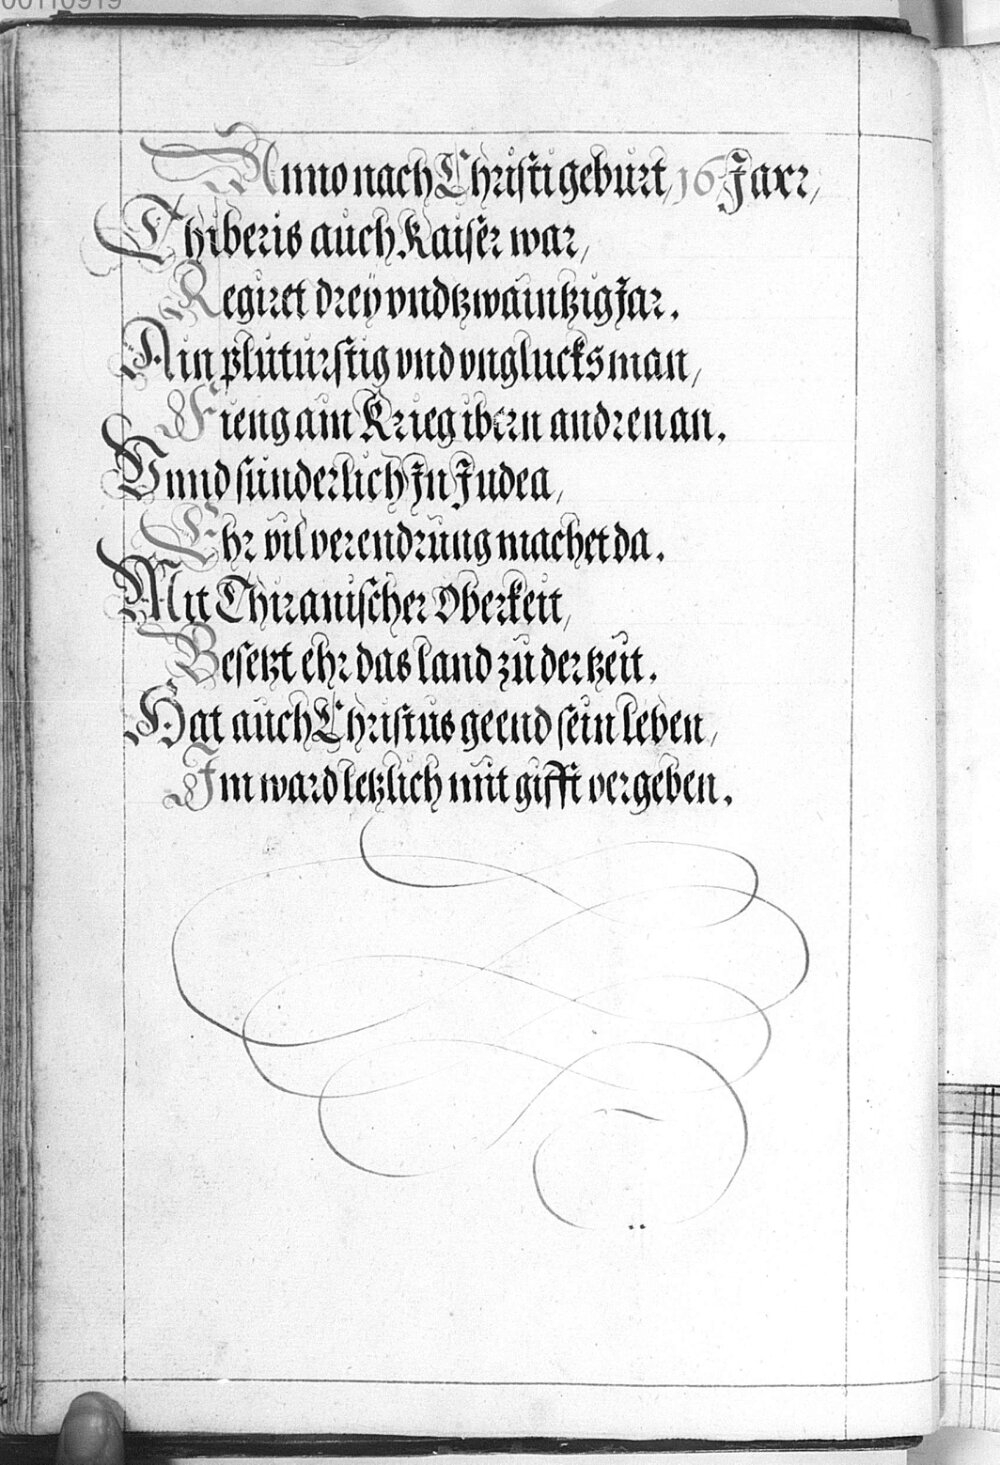 00110919
Anno nach Christi geburt, 16 Jarr,
Thiberis auch Kaiser war,
Regiret dreÿ vnd tzwaintzig Jar.
Ain plutturstig vnd vnglucksman,
Fieng ain Krieg ibern andren an.
Vnnd sunderlich In Judea,
Ehr vil verendrung machet da.
Mit Thiranischer Oberkeit,
Besetzt ehr das land zu der tzeit.
Hat auch Christus geend sein leben,
Im ward letzlich mit gifft vergeben.